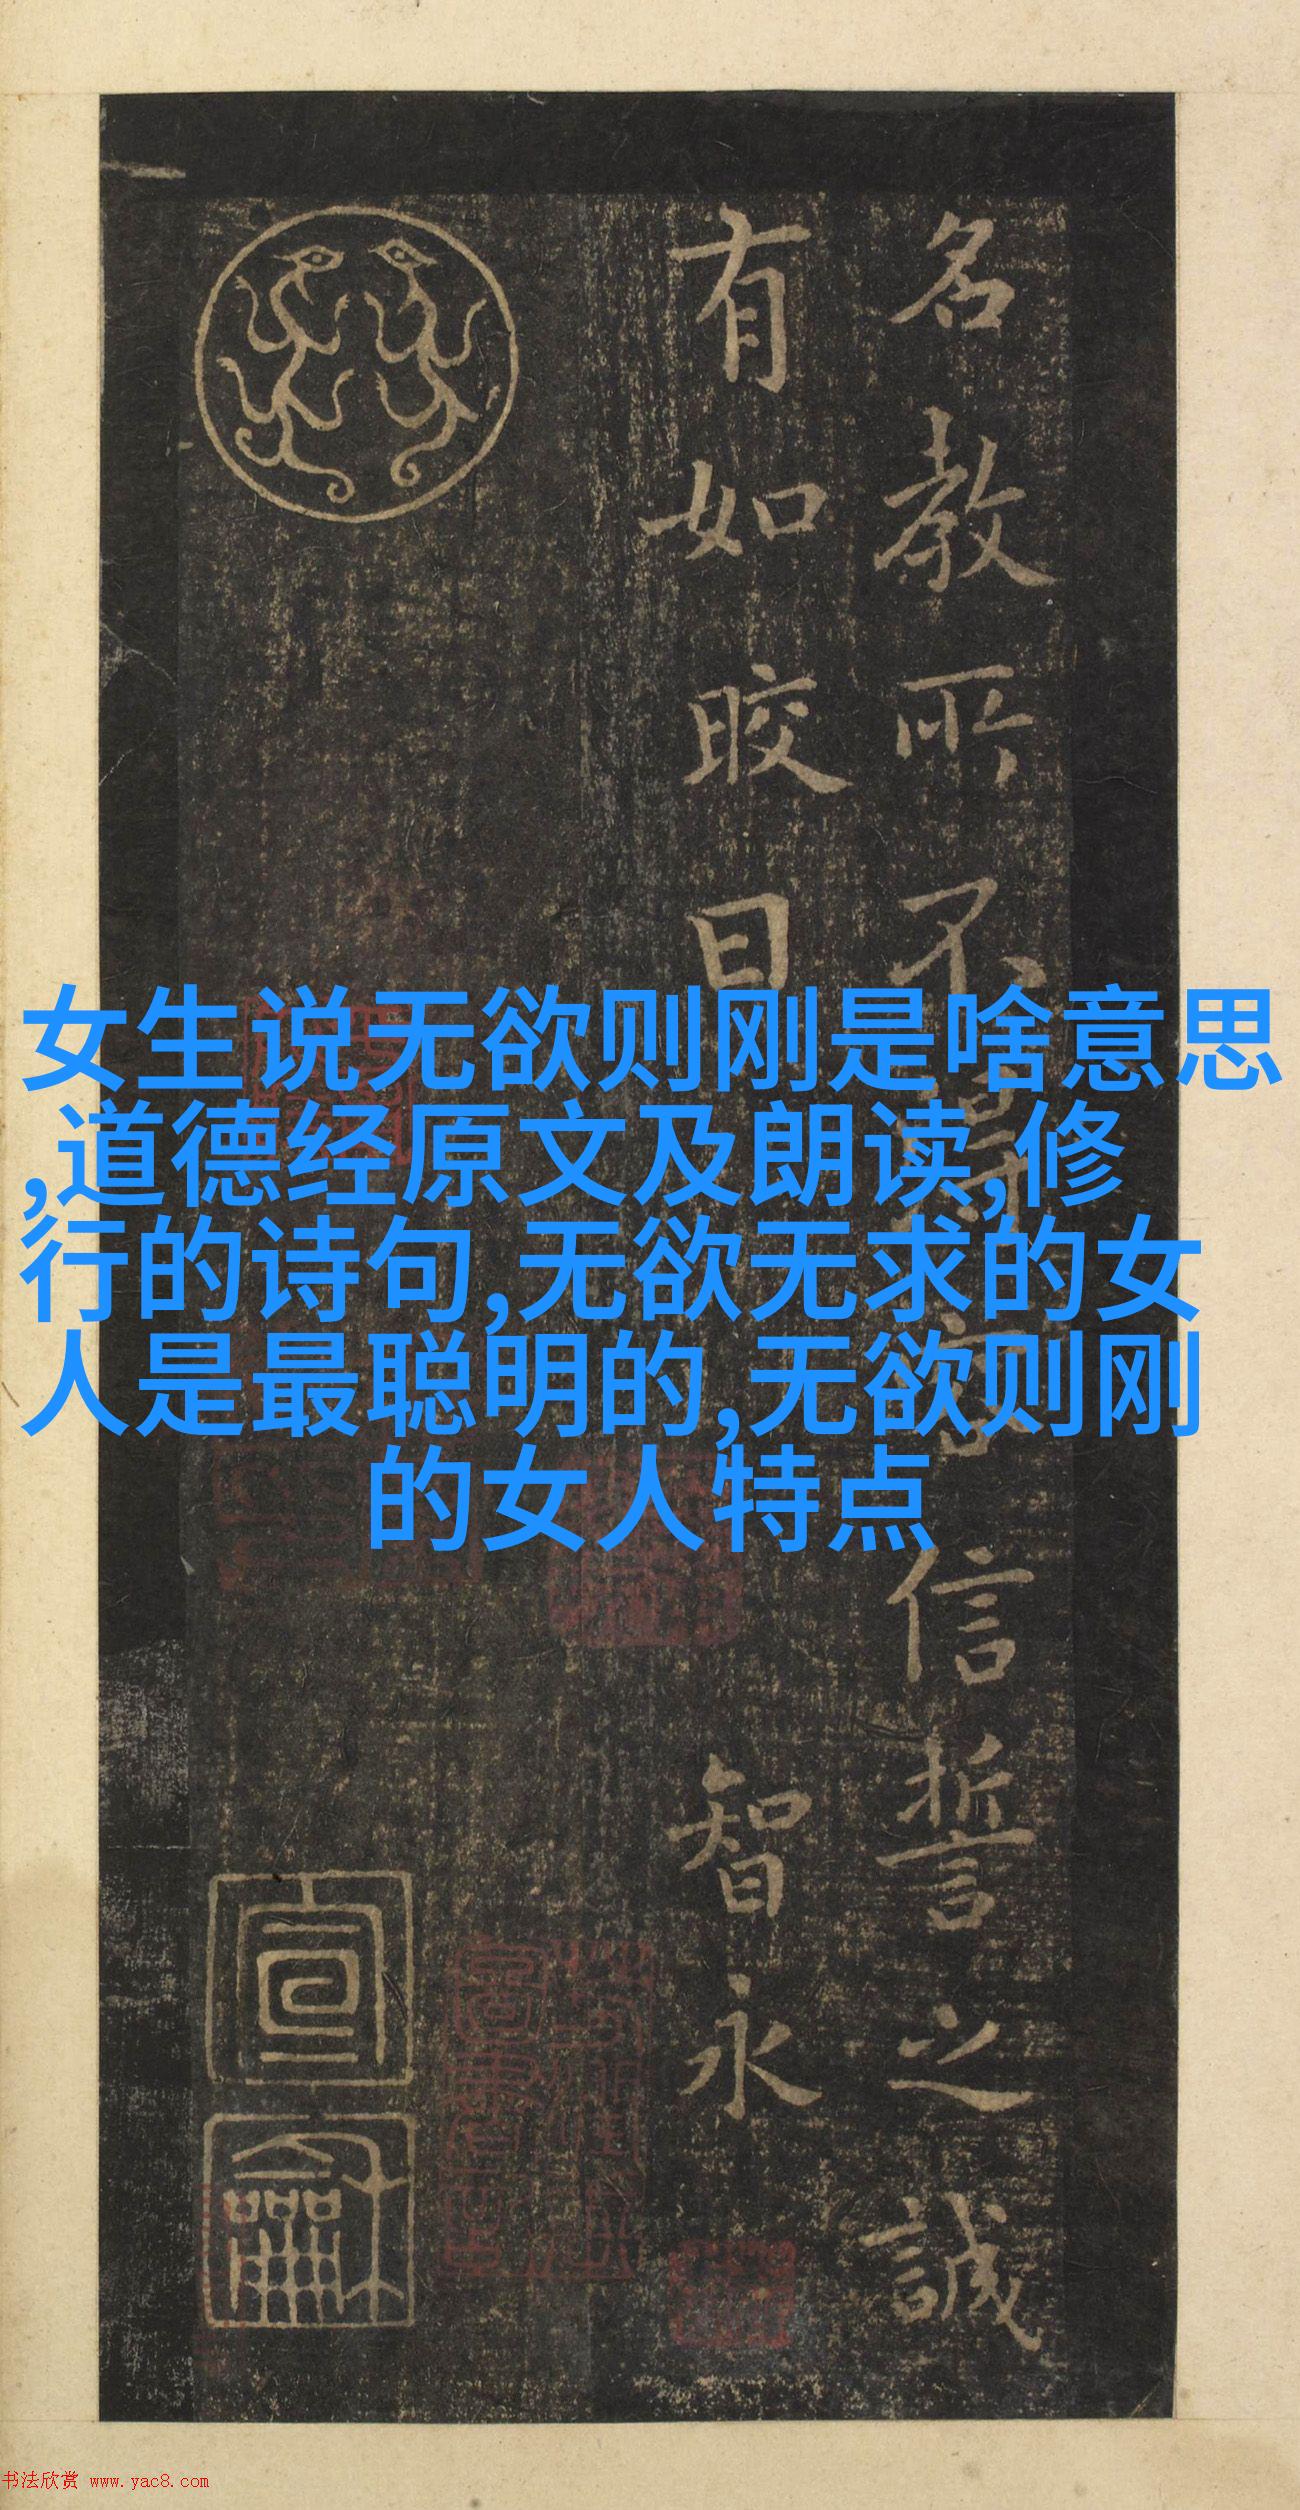 名教所不得容信誓之誠
有如晈日 智永
宣
龢
女生说无欲则刚是啥意思
,道德经原文及朗读,修
行的诗句,无欲无求的女
人是最聪明的,无欲则刚
的女人特点
书法欣赏 www.yac8.com